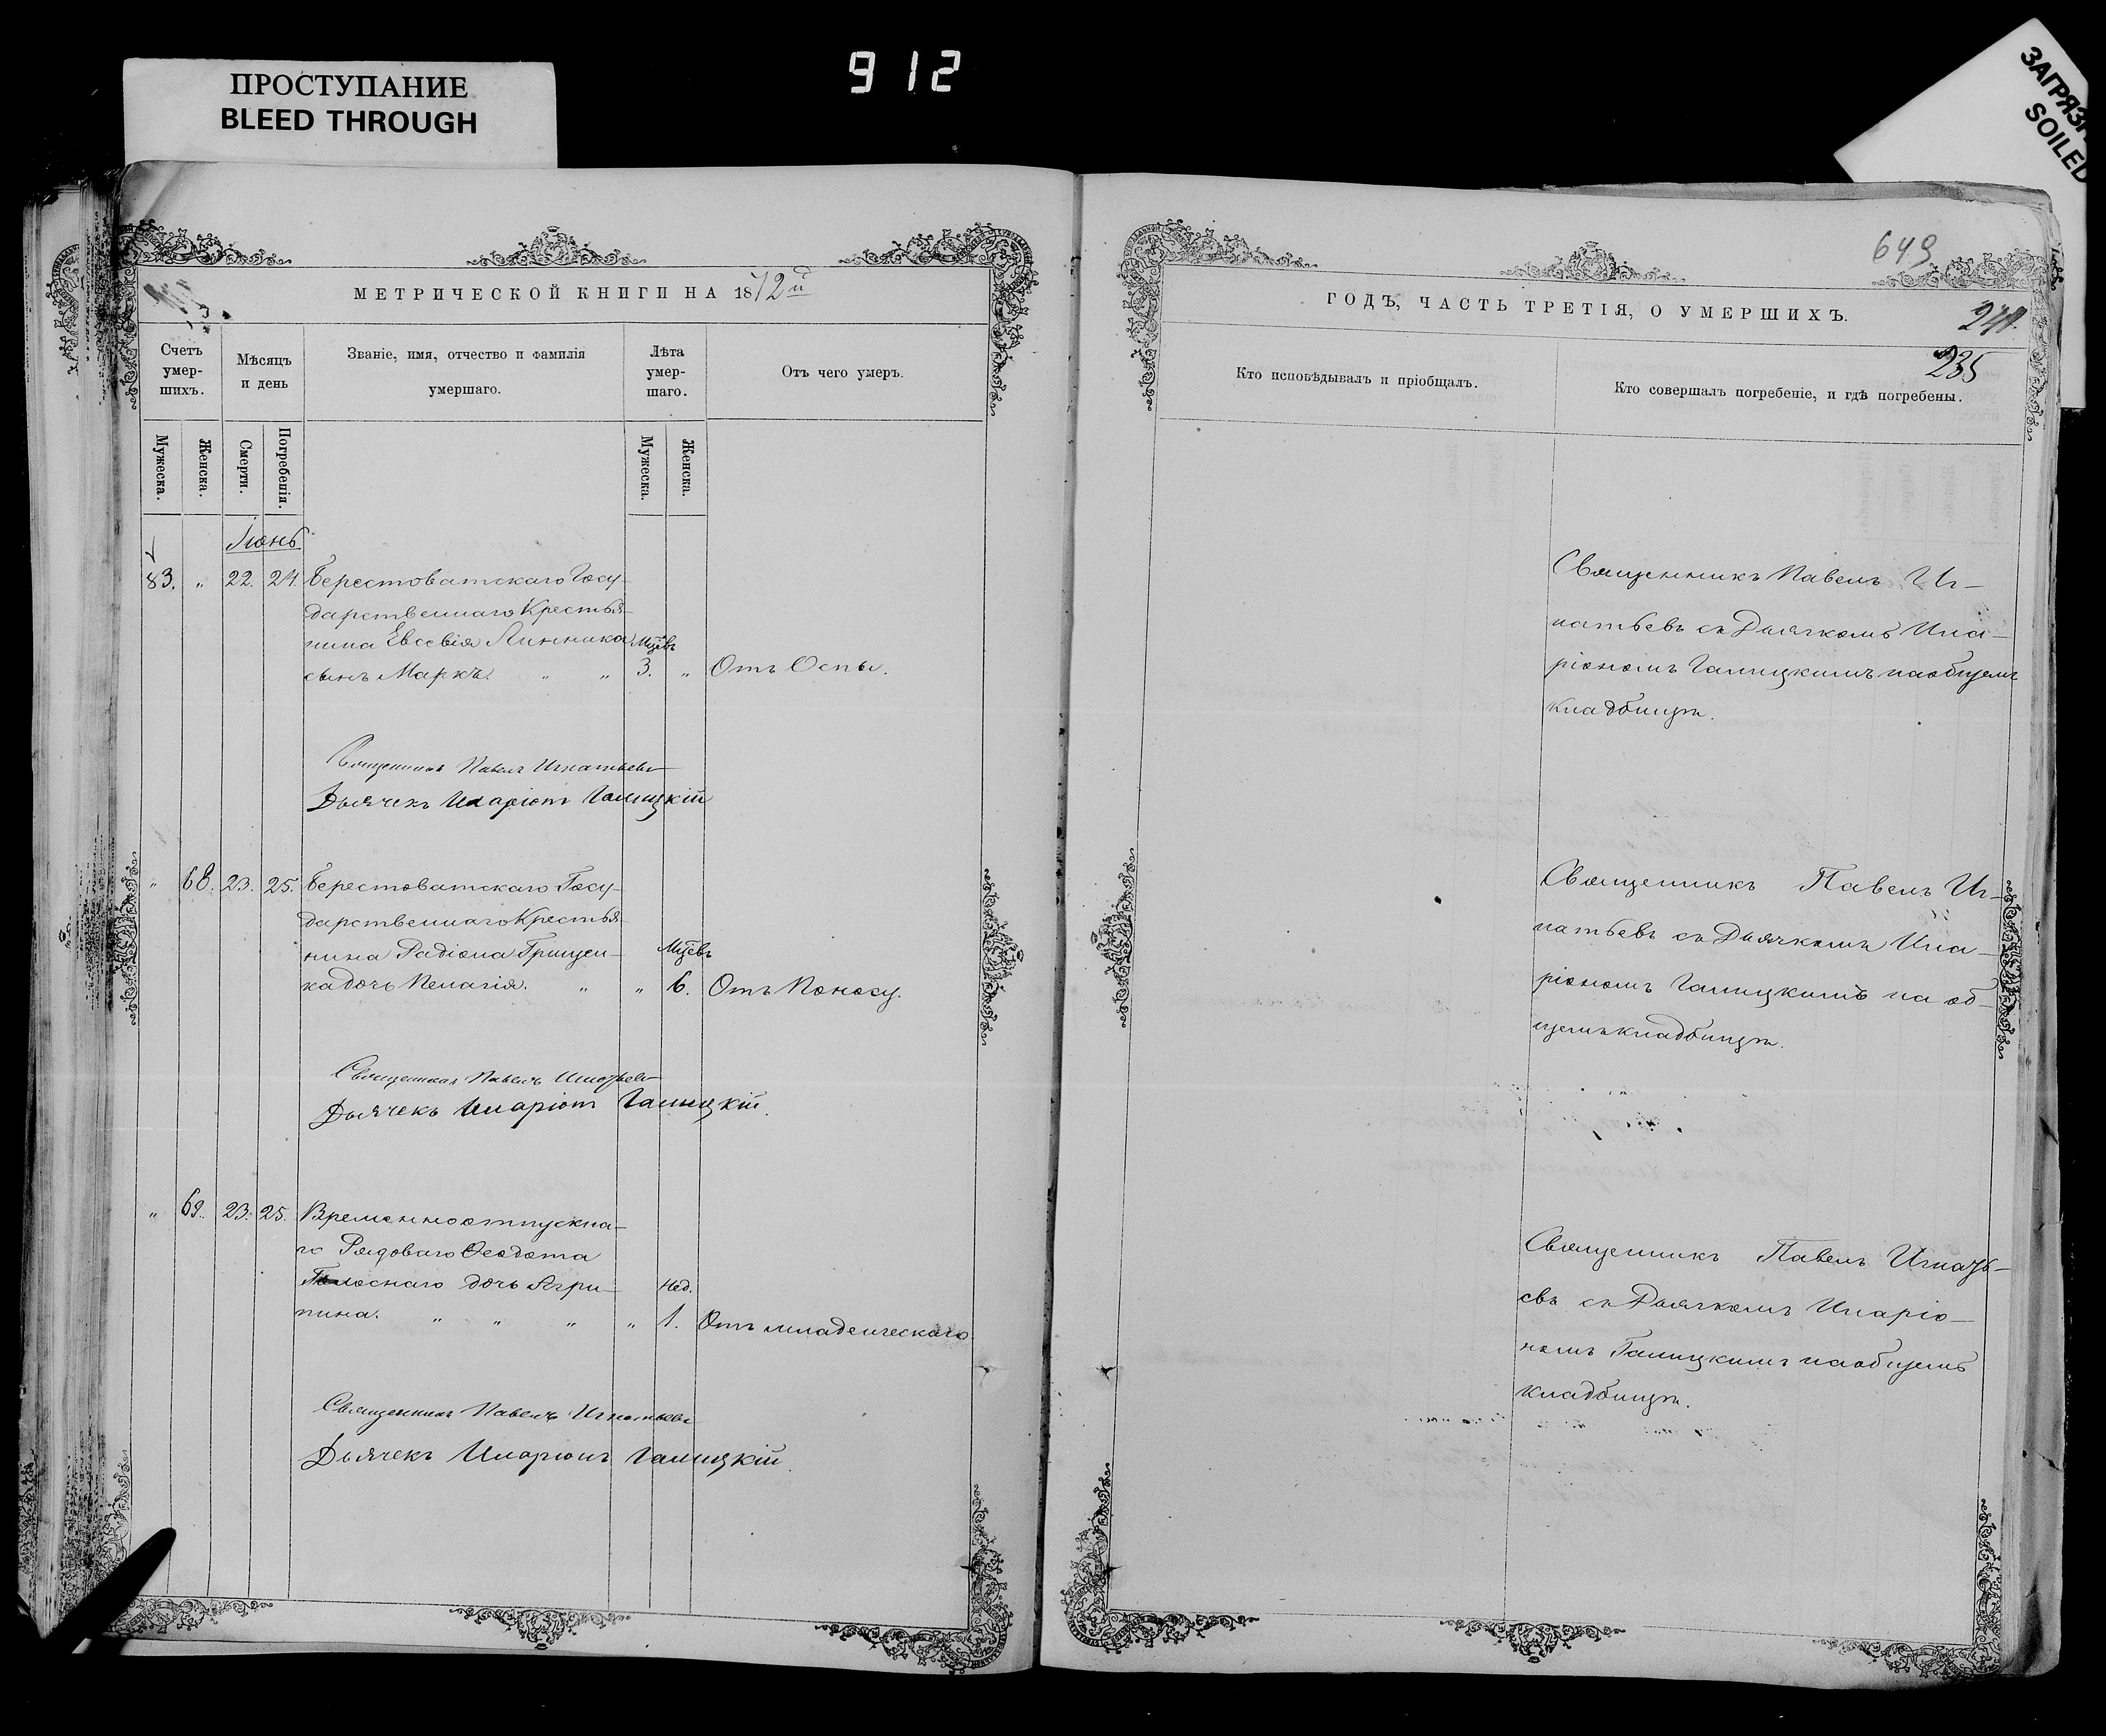 ПРОСТУПАНИЕ
BLEED THROUGH
912
ЗАГРЯЗН
SOILED
МЕТРИЧЕСКОЙ КНИГИ НА 1872й
Счетъ умер-шихъ.
Мѣсяцъ и день
Званіе, имя, отчество и фамилія умершаго.
Лѣта умер-шаго.
Отъ чего умеръ.
Мужеска.
Женска.
Смерти.
Погребенія.
Мужеска.
Женска.
Іюнь
83. „ 22. 24. Берестоватскаго Госу-
дарственнаго Крестья-
нина Евсевія Линника Мцѣвъ
сынъ Маркъ. „ „ 3. „ Отъ Оспы.
Священникъ Павелъ Игнатьевъ
Дьячекъ Иларіонъ Галицкій
„ 68. 23. 25. Берестоватскаго Госу-
дарственнаго Крестья-
нина Радіона Грицен- Мцѣвъ
ка дочь Пелагія. „ „ 6. Отъ Поносу.
Священникъ Павелъ Игнатьевъ
Дьячекъ Иларіонъ Галицкій.
„ 69. 23. 25. Временноотпускна-
го Рядоваго Ѳеодота
дочь Агри- Нед.
пина. „ „ „ „ 1. Отъ младенческаго
Священникъ Павелъ Игнатьевъ
Дьячекъ Иларіонъ Галицкій.
649
ГОДЪ, ЧАСТЬ ТРЕТІЯ, О УМЕРШИХЪ.
235
Кто исповѣдывалъ и пріобщалъ.
Кто совершалъ погребеніе, и гдѣ погребены.
Священникъ Павелъ Иг-
натьевъ съ Дьячкомъ Ила-
ріономъ Галицкимъ на общемъ
кладбищѣ.
Священникъ Павелъ Иг-
натьевъ съ Дьячкомъ Ила-
ріономъ Галицкимъ на об-
щемъ кладбищѣ.
Священникъ Павелъ Игнать-
евъ съ Дьячкомъ Иларіо-
номъ Галицкимъ на общемъ
кладбищѣ.